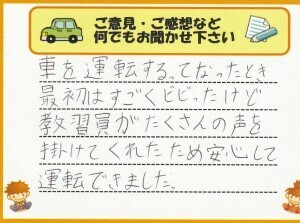 ご意見・ご感想など
何でもお聞かせ下さい
車を運転するってなったとき
最初はすごくビビったけど
教習員がたくさんの声を
掛けてくれたため安心して
運転できました。